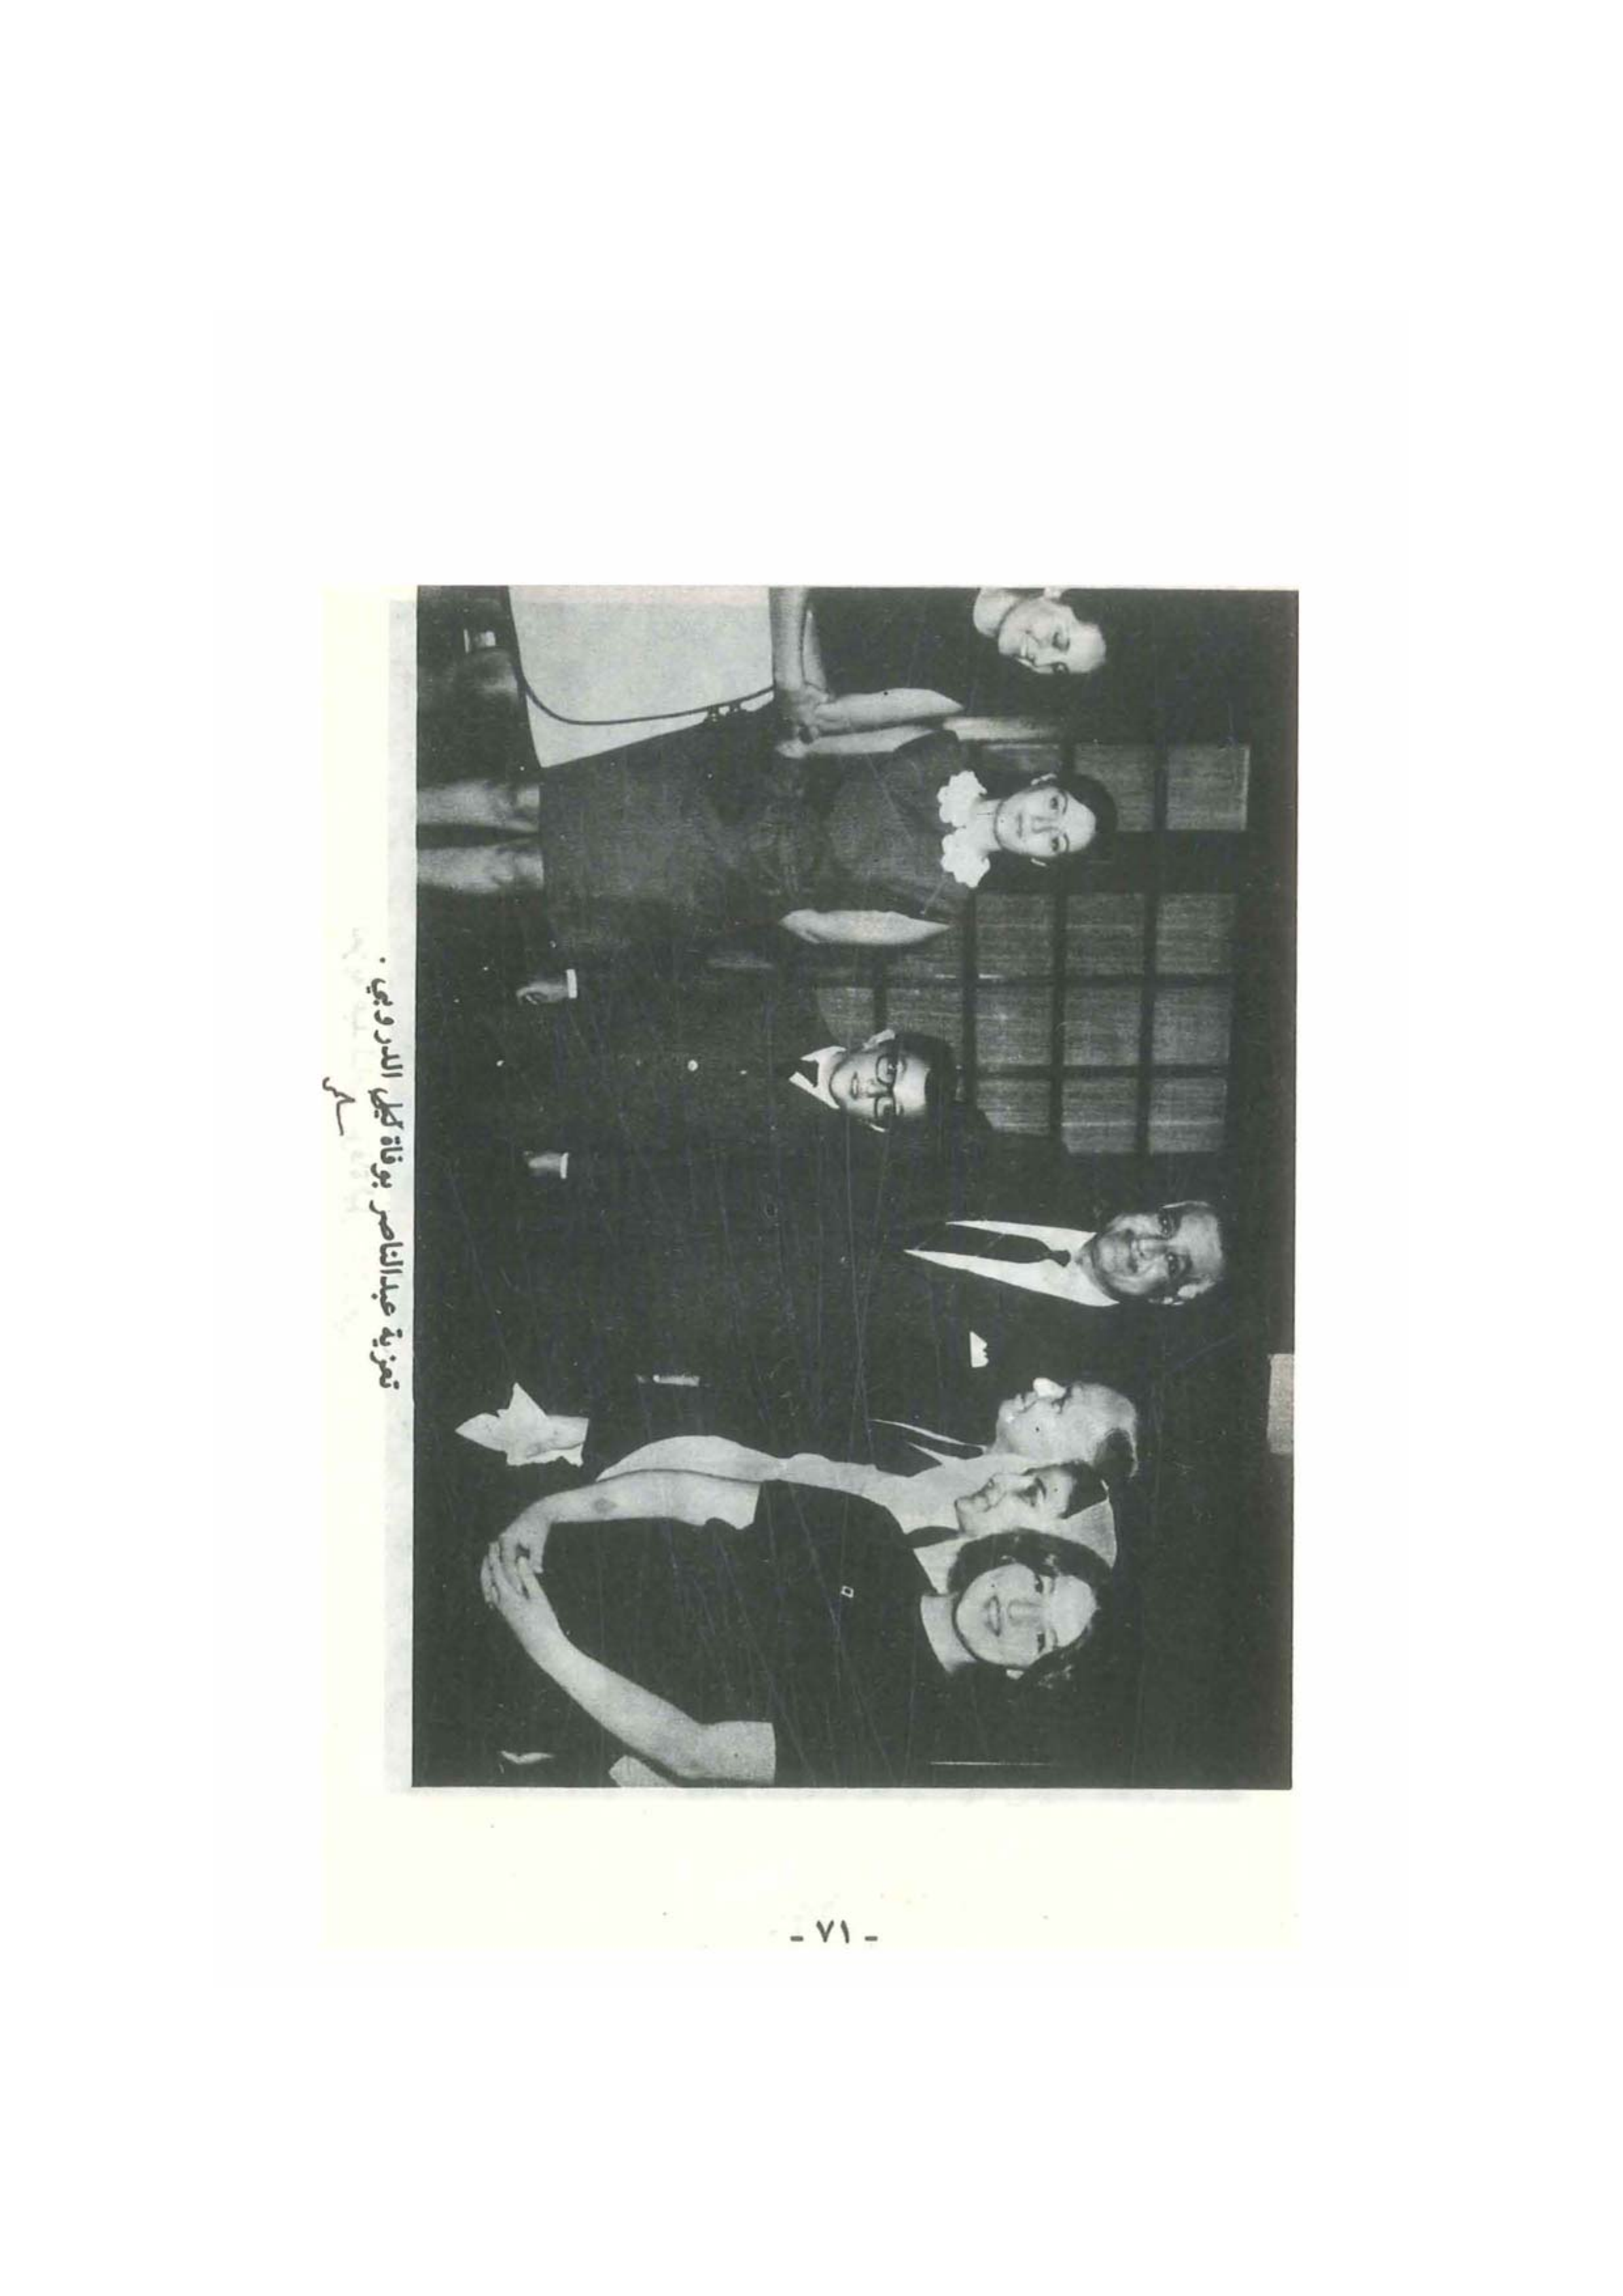 تعزية عبدالناصر بوفاة ليلى الدروبي .
سامي
- ٧١ -